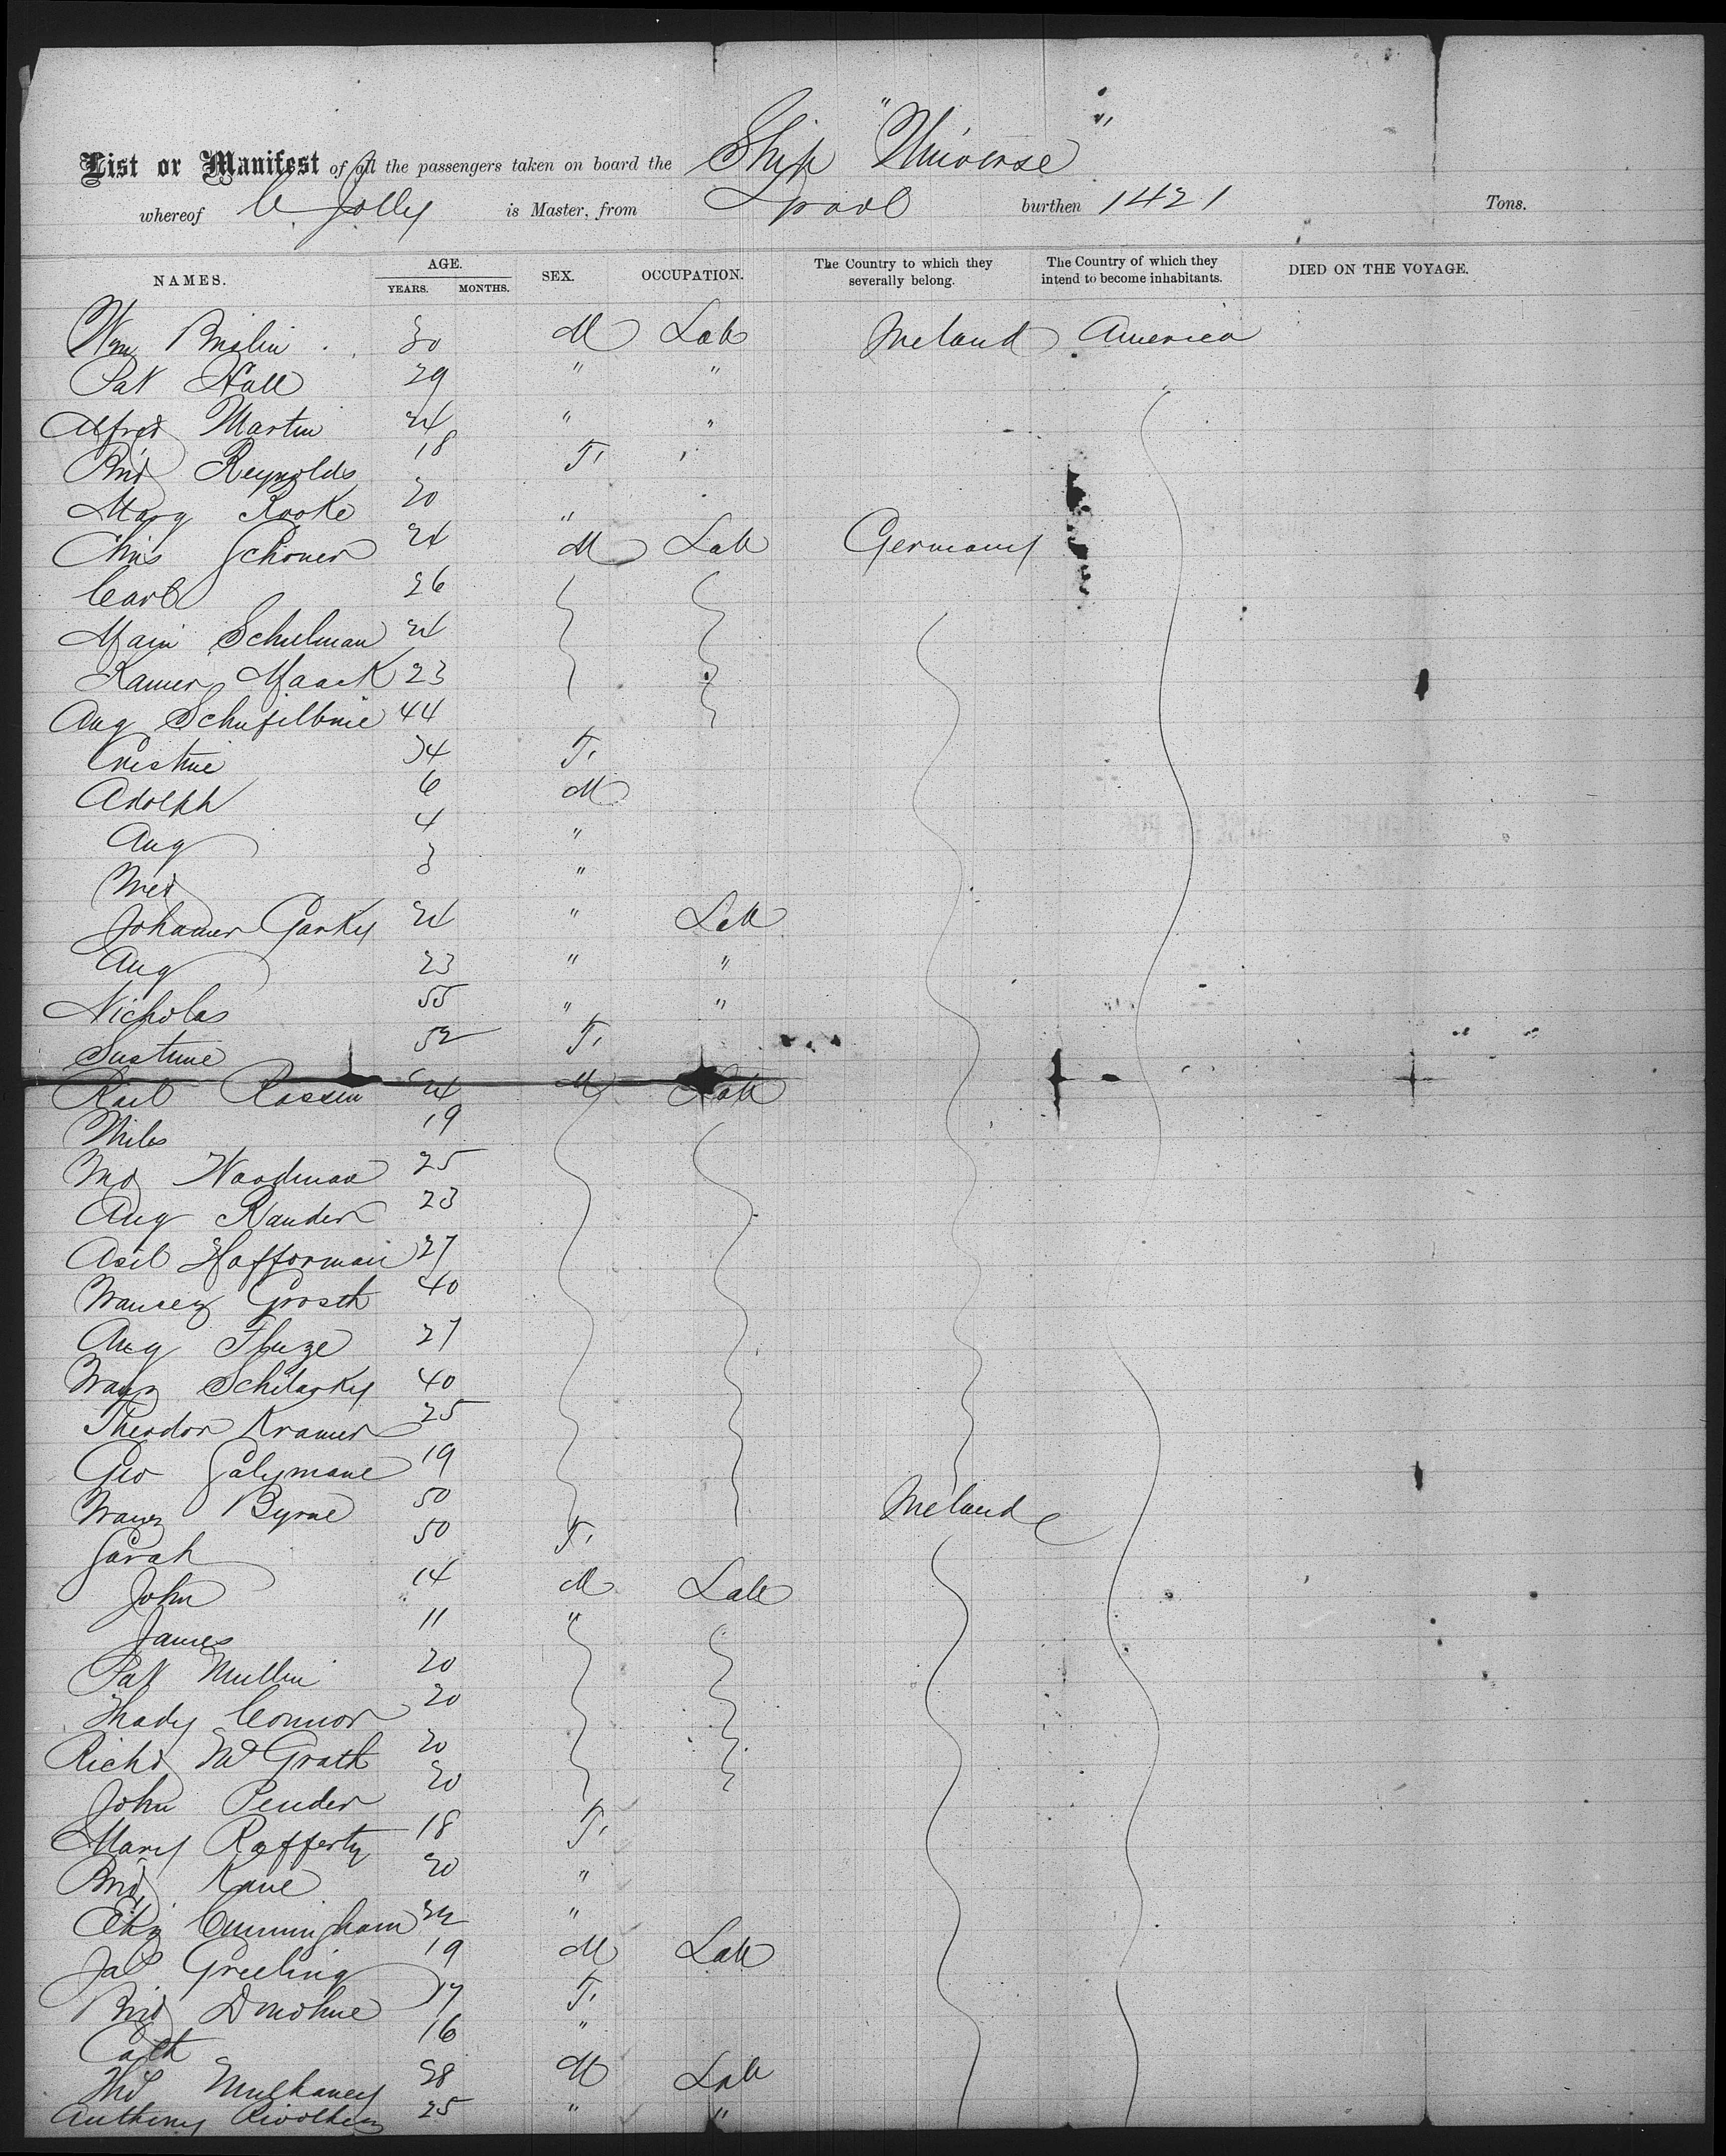 List or Manifest of all the passengers taken on board the Ship "Universe"
whereof C Jolly is Master, from Lpool burthen 1421 Tons.
NAMES. AGE. YEARS. MONTHS. SEX. OCCUPATION. The Country to which they severally belong. The Country of which they intend to become inhabitants. DIED ON THE VOYAGE.
Wm 30 M Lab Ireland America
Pat Hall 29 " "
Alfred Martin 24 " "
Brid Reynolds 18 F.
Marg Rooke 20 "
Chris Schoner 24 M Lab Germany
Carl 26
Schulman 24
Maack 23
Aug 44
Cristine 34 F.
Adolph 6 M
Aug 4 "
3 "
Garky 24 " Lab
Aug 23 " "
Nicholas 55 " "
52 F.
Rossen 24 M Lab
19
Woodman 25
Aug Rander 23
Hafforman 27
Grosth 40
Aug 27
Schilarky 40
Theodor Kramer 25
Geo 19
Byrne 50 Ireland
Sarah 50 F.
John 14 M Lab
James 11 "
Pat Mullin 20
Thady Connor 20
Richd McGrath 20
John Pender 20
Mary Rafferty 18 F.
Brid Kane 20 "
Cunningham 22 "
Jas Greeling 19 M Lab
Brid Donohue 17 F.
Cath 16 "
Mulhaney 28 M Lab
Anthony 25 " "